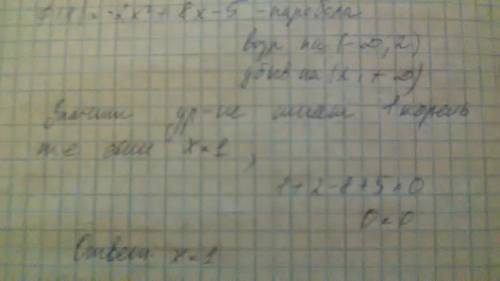 f(x) = -2x² + 8x - 5 - парабола
возр на (-∞, 2)
убыв на (2, +∞)
Значит ур-ие имеет 1 корень
x=1,
1+2-8+5=0
0=0
Ответ: x=1